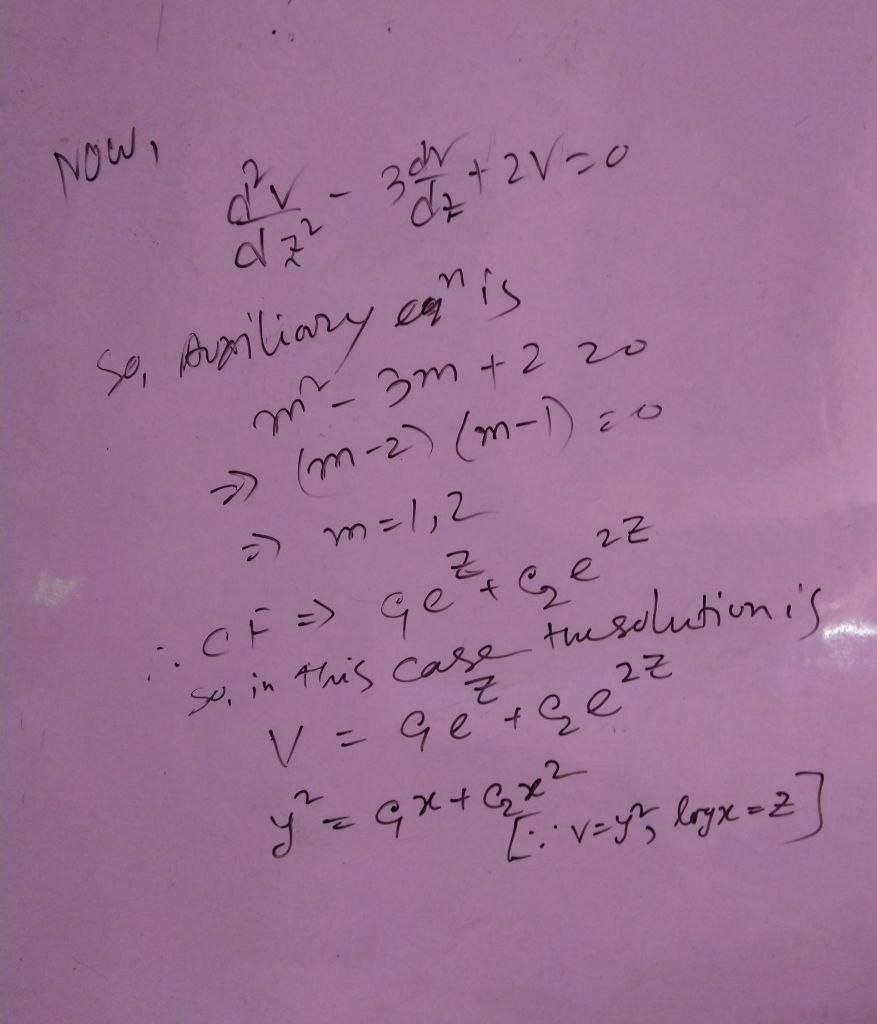 Now,
d²v/dz² - 3dv/dz + 2V=0
So, Auxiliary eqⁿ is
m² - 3m + 2 = 0
⇒ (m-2) (m-1) = 0
⇒ m=1,2
∴ CF ⇒ C₁e^z + C₂e^2z
so, in this case the solution is
V = C₁e^z + C₂e^2z
y² = C₁x + C₂x²
[∵ v=y², logx=z]